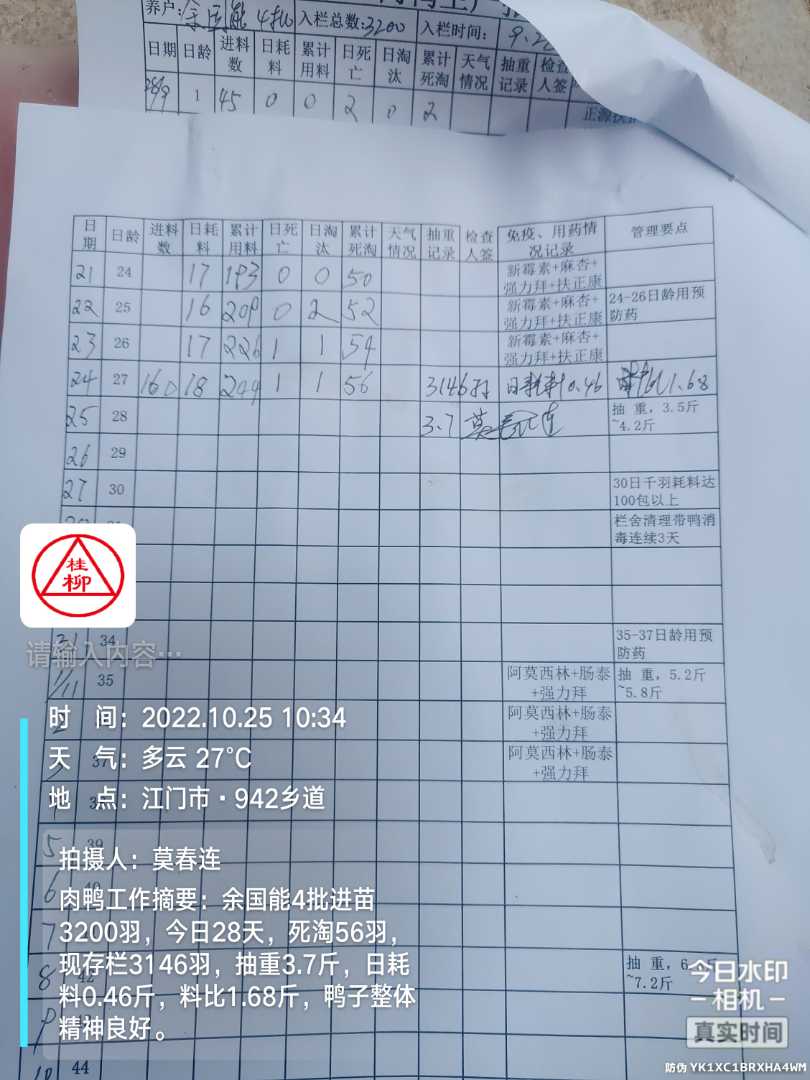 养户:余国能 4批 入栏总数:3200 入栏时间:
日期 日龄 进料数 日耗料 累计用料 日死亡 日淘汰 累计死淘 天气情况 抽重记录 检查人签
28/9 1 45 0 0 2 0 2
日期 日龄 进料数 日耗料 累计用料 日死亡 日淘汰 累计死淘 天气情况 抽重记录 检查人签 免疫、用药情况记录 管理要点
21 24 17 193 0 0 50 新霉素+麻杏+强力拜+扶正康
22 25 16 209 0 2 52 新霉素+麻杏+强力拜+扶正康 24-26日龄用预防药
23 26 17 226 1 1 54 新霉素+麻杏+强力拜+扶正康
24 27 160 18 244 1 1 56 3146羽 日耗料0.46 1.68
25 28 3.7 莫春连 抽重，3.5斤~4.2斤
26 29
27 30 30日千羽耗料达100包以上
栏舍清理带鸭消毒连续3天
桂柳
31 34 35-37日龄用预防药
请输入内容…
1/11 35 阿莫西林+肠泰+强力拜 抽重，5.2斤~5.8斤
阿莫西林+肠泰+强力拜
阿莫西林+肠泰+强力拜
时 间：2022.10.25 10:34
天 气：多云 27℃
地 点：江门市·942乡道
5 39
6
7
8 42 抽重，6. 斤~7.2斤
拍摄人：莫春连
肉鸭工作摘要：余国能4批进苗
3200羽，今日28天，死淘56羽，
现存栏3146羽，抽重3.7斤，日耗
料0.46斤，料比1.68斤，鸭子整体
精神良好。
10 44
今日水印
相机
真实时间
防伪 YK1XC1BRXHA4WM